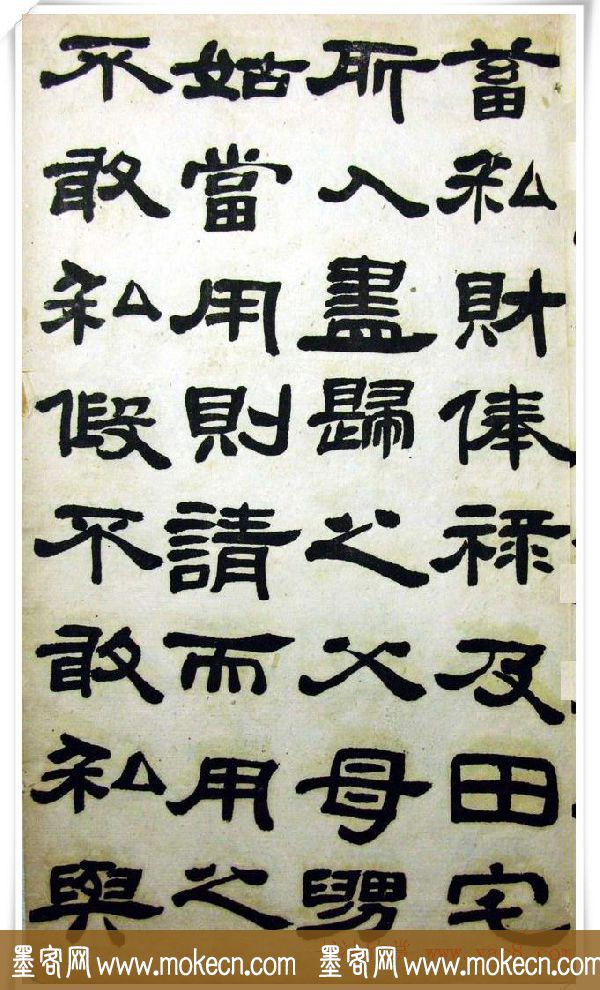 蓄私財俸禄及田宅
所入盡歸之父母舅
姑當用則請而用之
不敢私假不敢私與
墨客网 www.mokecn.com 墨客网 www.mokecn.com